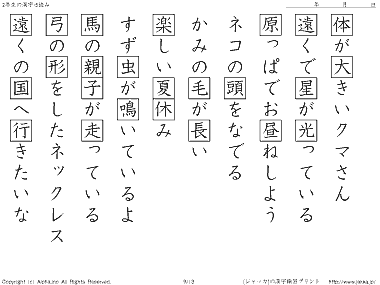 2年生の漢字の読み
年 月 日
体が大きいクマさん
遠くで星が光っている
原っぱでお昼ねしよう
ネコの頭をなでる
かみの毛が長い
楽しい夏休み
すず虫が鳴いているよ
馬の親子が走っている
弓の形をしたネックレス
遠くの国へ行きたいな
Copyright (c) Alphaline All Rights Reserved.
(ジャッカ)の漢字練習プリント